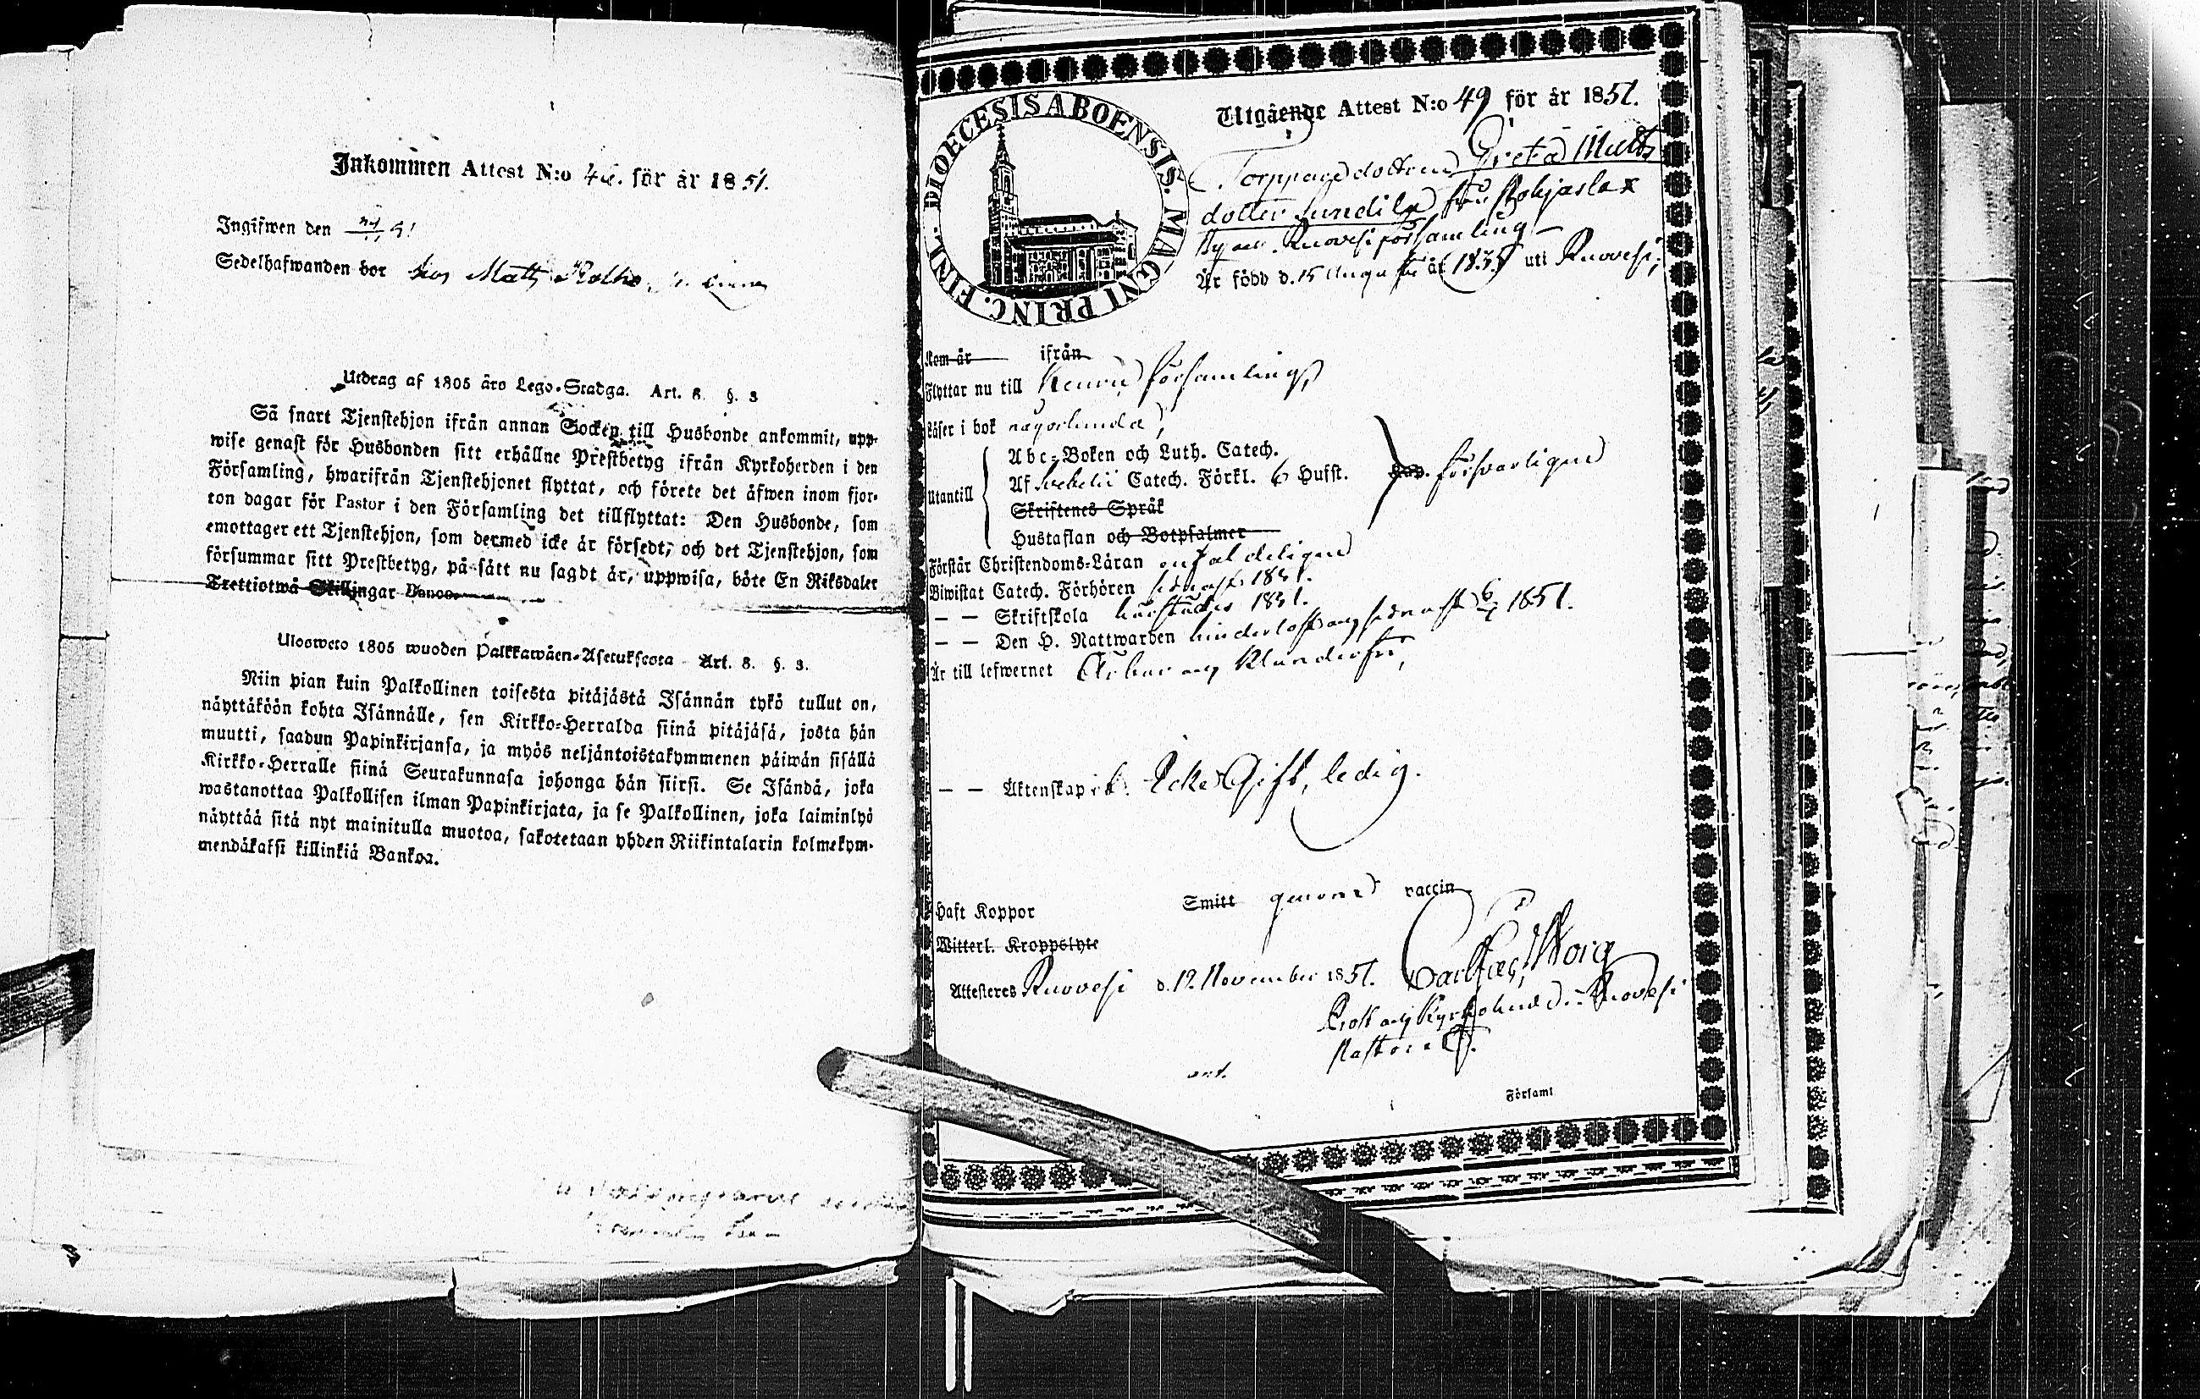 Inkommen Attest N:o för år 1851.
Ingifwen den
Sedelhafwanden bor hos Matts
Utdrag af 1805 års Lego-Stadga. Art. 8. §. 3
Så snart Tjenstehjon ifrån annan Socken till Husbonde ankommit, upp-
wise genast för Husbonden sitt erhållne Prestbetyg ifrån Kyrkoherden i den
Församling, hwarifrån Tjenstehjonet flyttat, och förete det äfwen inom fjor-
ton dagar för Pastor i den Församling det tillflyttat: Den Husbonde, som
emottager ett Tjenstehjon, som dermed icke är försedt, och det Tjenstehjon, som
försummar sitt Prestbetyg, på sätt nu sagdt är, uppwisa, böte En Riksdaler
Trettiotwå Skillingar Banco.
Ulosweto 1805 wuoden Palkkawäen-Asetuksesta Art. 8. §. 3.
Niin pian kuin Palkollinen toisesta pitäjästä Isännän tykö tullut on,
näyttäköön kohta Isännälle, sen Kirkko-Herralda siinä pitäjäsä, josta hän
muutti, saadun Papinkirjansa, ja myös neljäntoistakymmenen päiwän sisällä
Kirkko-Herralle siinä Seurakunnasa johonga hän siirsi. Se Isändä, joka
wastanottaa Palkollisen ilman Papinkirjata, ja se Palkollinen, joka laiminlyö
näyttää sitä nyt mainitulla muotoa, sakotetaan yhden Riikintalarin kolmekym-
mendäkaksi killinkiä Bankoa.
DIOECESIS ABOENSIS. MAGNI PRINC. FINL.
Utgående Attest N:o 49 för år 1851.
Torppare dottern Greta Matts
dotter från Pohjaslax
By och Ruovesi församling
Är född d. 15 Augusti år 1835 uti Ruovesi,
Kom år ifrån
Flyttar nu till Keuru församling,
Läser i bok någorlunda,
Utantill
Abc-Boken och Luth. Catech.
Af Svebelii Catech. Förkl. 6 Hufst. försvarligen
Skriftenes Språk
Hustaflan och Botpsalmer
Förstår Christendoms-Läran enfaldeligen
Biwistat Catech. Förhören sednast 1851.
— — Skriftskola härstädes 1851.
— — Den H. Nattwarden hinderlöst och sednast 1851.
Är till lefwernet Ärbar och klanderfri,
— — Äktenskap Icke Gift, ledig.
Haft Koppor Smitt genom vaccin
Witterl. Kroppslyte
Attesteras Ruovesi d. 19. November 1851.
Prost och Kyrkoherde i Ruovesi
Pastorat.
Församl